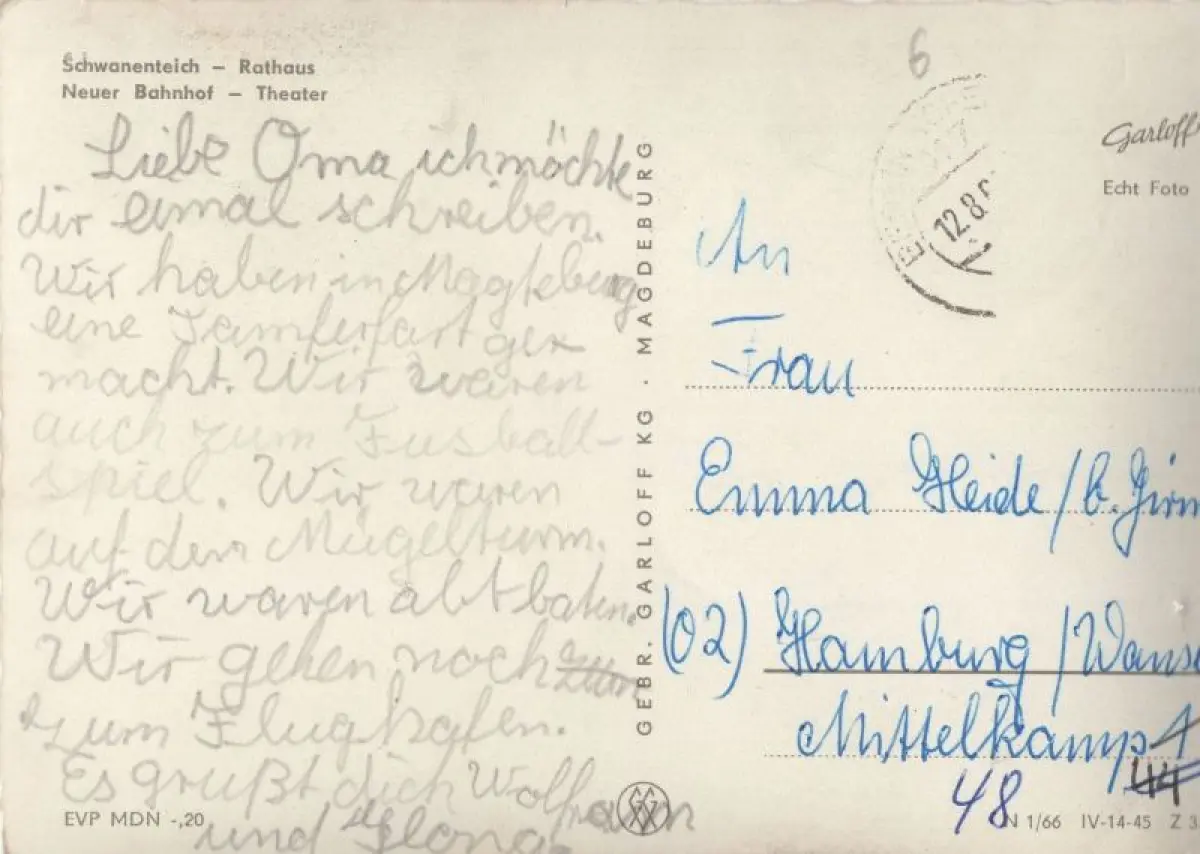 Schwanenteich – Rathaus
Neuer Bahnhof – Theater
Liebe Oma ich möchte
dir eimal schreiben.
Wir haben in Magdeburg
eine Tamferfart ge=
macht. Wir waren
auch zum Fusball-
spiel. Wir waren
auf dem Mügelturm.
Wir waren abt baten.
Wir gehen noch zum
zum Flughafen.
Es grüßt dich Wolfram
und Ilona
EVP MDN -,20
GEBR. GARLOFF KG. MAGDEBURG
6
12.8.
Garloff
Echt Foto
An
Frau
Emma Heide/b. Girm
(02) Hamburg/Wanse
Mittelkamp 1
44
48
N 1/66 IV-14-45 Z 3